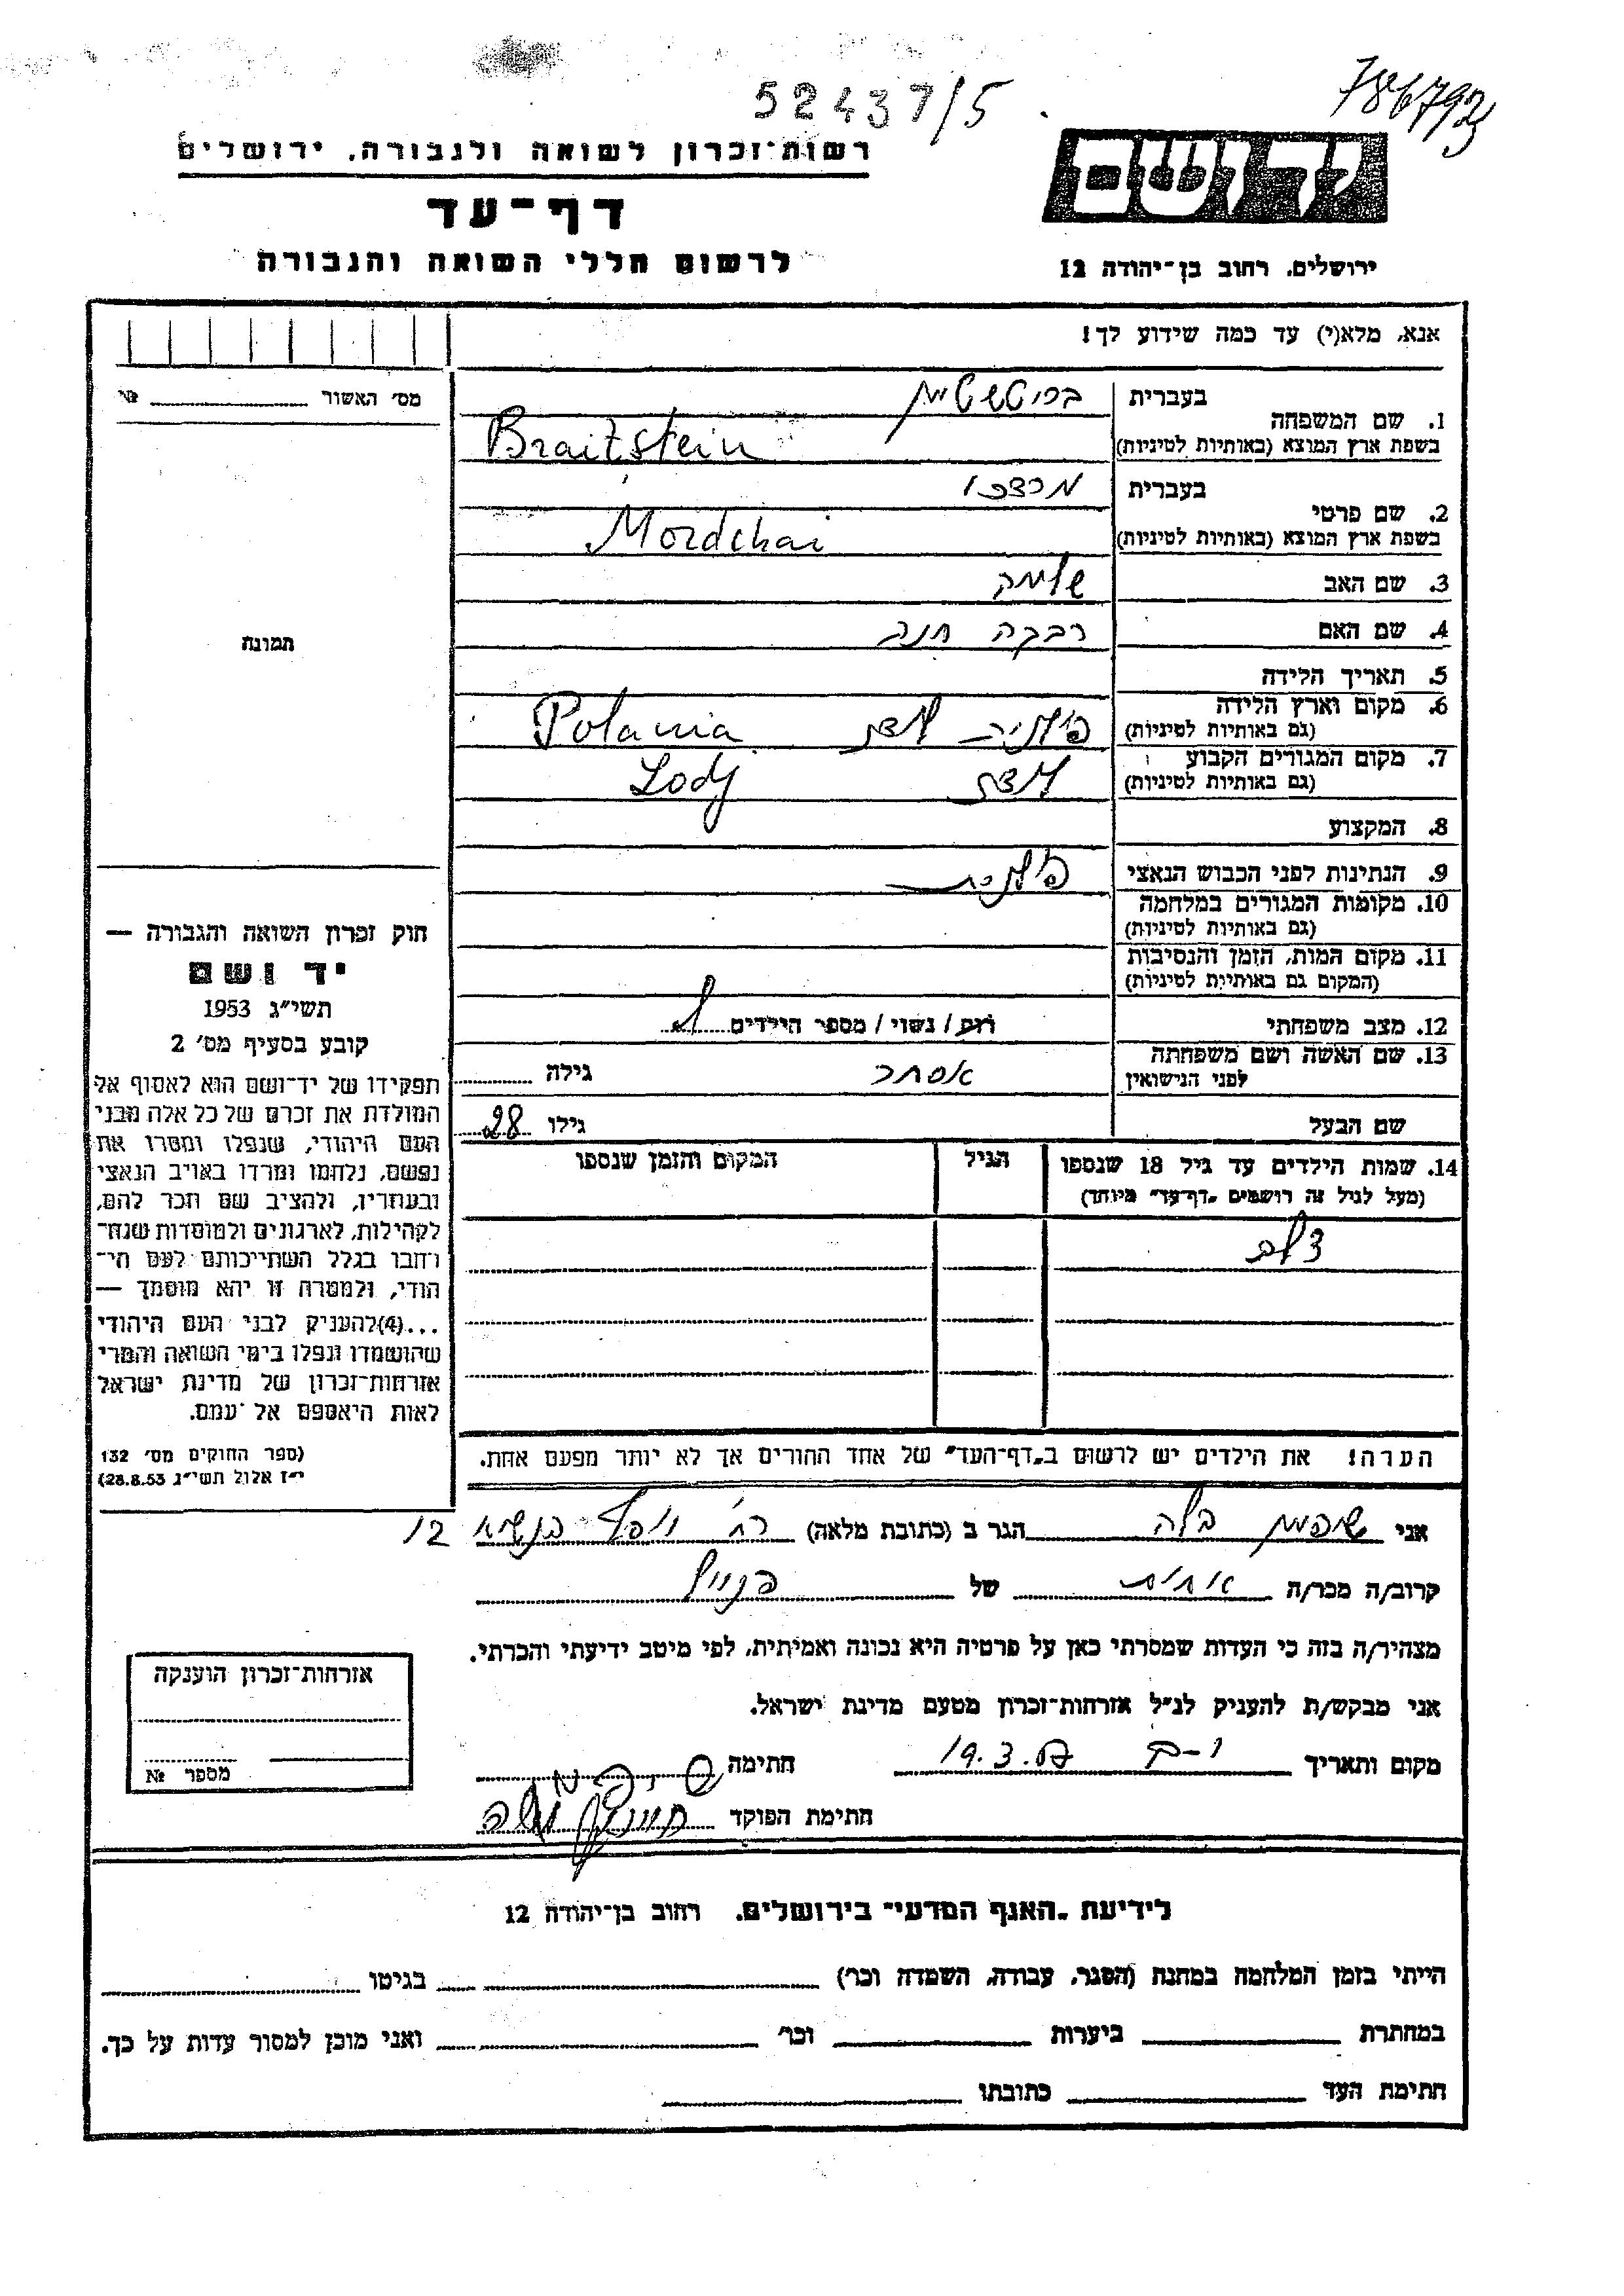 52437/5
786792
רשות־זכרון לשואה ולגבורה, ירושלים
דף־עד
לרשום חללי השואה והגבורה
ידושם
ירושלים, רחוב בן־יהודה 12
אנא, מלא(י) עד כמה שידוע לך!
מס׳ האשור № 
1. שם המשפחה
בעברית
בשפת ארץ המוצא (באותיות לטיניות)
Braitstein
2. שם פרטי
בעברית מרדכי
בשפת ארץ המוצא (באותיות לטיניות)
Mordchai
3. שם האב שלמה
4. שם האם רבקה חנה
5. תאריך הלידה
6. מקום וארץ הלידה
(גם באותיות לטיניות)
פולניה לודז Polania
7. מקום המגורים הקבוע
(גם באותיות לטיניות)
לודז Lodj
8. המקצוע
9. הנתינות לפני הכבוש הנאצי פולנית
10. מקומות המגורים במלחמה
(גם באותיות לטיניות)
11. מקום המות, הזמן והנסיבות
(המקום גם באותיות לטיניות)
12. מצב משפחתי רוק / נשוי / מספר הילדים
13. שם האשה ושם משפחתה
לפני הנישואין
אסתר גילה
שם הבעל גילו 28
14. שמות הילדים עד גיל 18 שנספו
(מעל לגיל זה רושמים „דף־עד״ מיוחד)
הגיל
המקום והזמן שנספו
הערה! את הילדים יש לרשום ב„דף־העד״ של אחד ההורים אך לא יותר מפעם אחת.
תמונה
חוק זכרון השואה והגבורה —
יד ושם
תשי״ג 1953
קובע בסעיף מס׳ 2
תפקידו של יד־ושם הוא לאסוף אל
המולדת את זכרם של כל אלה מבני
העם היהודי, שנפלו ומסרו את
נפשם, נלחמו ומרדו באויב הנאצי
ובעוזריו, ולהציב שם וזכר להם,
לקהילות, לארגונים ולמוסדות שנח־
רבו בגלל השתייכותם לעם הי־
הודי, ולמטרה זו יהא מוסמך —
...(4)להעניק לבני העם היהודי
שהושמדו ונפלו בימי השואה והמרי
אזרחות־זכרון של מדינת ישראל
לאות היאספם אל עמם.
(ספר החוקים מס׳ 132
י״ז אלול תשי״ג 28.8.53)
אני בלה הגר ב (כתובת מלאה) רח׳ 12
קרוב/ה מכר/ה אחות של
מצהיר/ה בזה כי העדות שמסרתי כאן על פרטיה היא נכונה ואמיתית, לפי מיטב ידיעתי והכרתי.
אני מבקש/ת להעניק לנ״ל אזרחות־זכרון מטעם מדינת ישראל.
מקום ותאריך 19.3.57 חתימה
חתימת הפוקד
אזרחות־זכרון הוענקה
מספר №
לידיעת „האגף המדעי״ בירושלים, רחוב בן־יהודה 12
הייתי בזמן המלחמה במחנה (הסגר, עבודה, השמדה וכו׳) בגיטו
במחתרת ביערות וכו׳ ואני מוכן למסור עדות על כך.
חתימת העד כתובתו